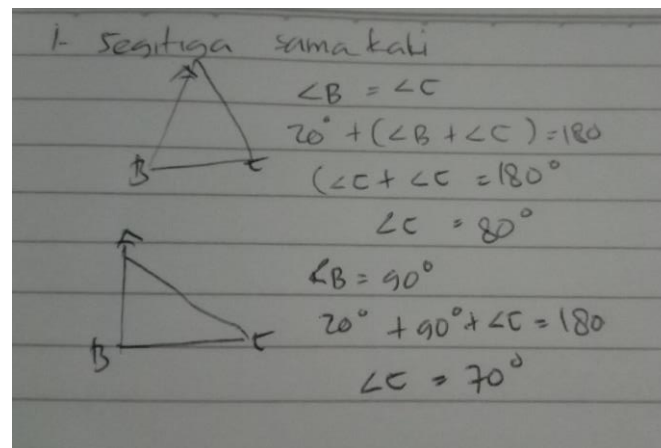 1- Segitiga sama kaki
A
∠B = ∠C
20° + (∠B + ∠C) = 180
B C
(∠C + ∠C = 180°
∠C = 80°
A
∠B = 90°
20° + 90° + ∠C = 180
B C
∠C = 70°